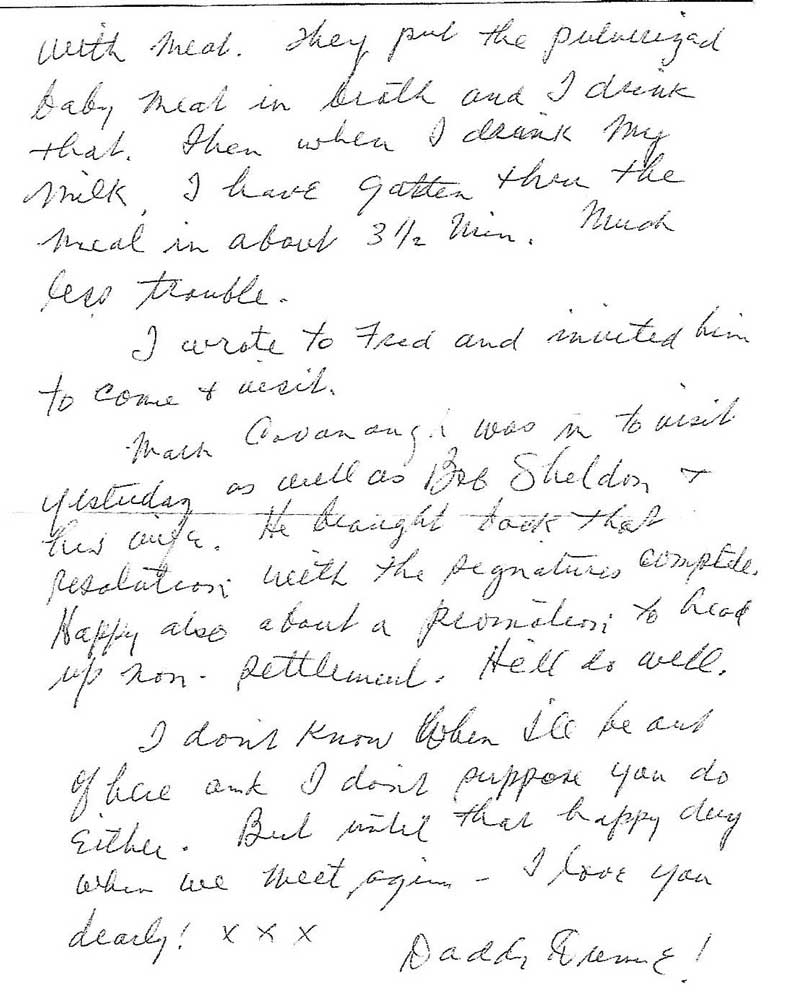 with meat. They put the pulverizad
baby meat in broth and I drink
that. Then when I drink my
milk, I have gotten thru the
meal in about 3 1/2 min. Much
less trouble.
I wrote to Fred and invited him
to come & visit.
Mark Cavanaugh was in to visit
yesterday as well as Bob Sheldon &
his wife. He brought back that
resolution with the signatures complete.
Happy also about a promotion to head
up non-settlement. He'll do well.
I don't know when I'll be out
of here and I don't suppose you do
either. But until that happy day
when we meet again - I love you
dearly! x x x
Daddy !